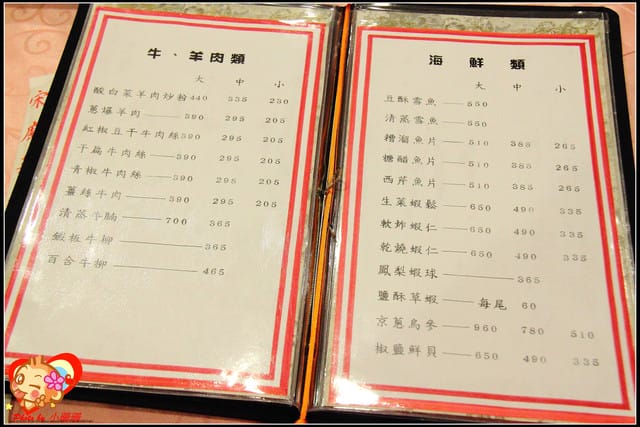 牛、羊肉類
大 中 小
酸白菜羊肉炒粉 440 335 230
蔥爆羊肉 390 295 205
紅椒豆干牛肉絲 390 295 205
干扁牛肉絲 390 295 205
青椒牛肉絲 390 295 205
薑絲牛肉 390 295 205
清蒸牛腩 700 365
鐵板牛柳 365
百合牛柳 465
海鮮類
大 中 小
豆酥雪魚 550
清蒸雪魚 550
糟溜魚片 510 385 265
糖醋魚片 510 385 265
西芹魚片 510 385 265
生菜蝦鬆 650 490 335
軟炸蝦仁 650 490 335
乾燒蝦仁 650 490 335
鳳梨蝦球 365
鹽酥草蝦 每尾 60
京蔥烏參 960 780 510
椒鹽鮮貝 650 490 335